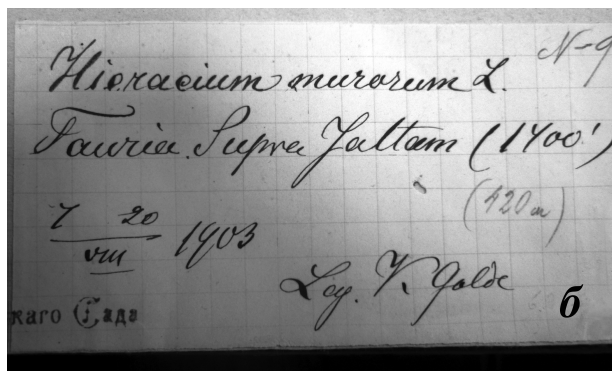 N-9
Hieracium murorum L.
Tauria. Supra Jaltam (1400')
(420 m)
7 20
VIII 1903
Leg. K. Golde
каго Сада
б